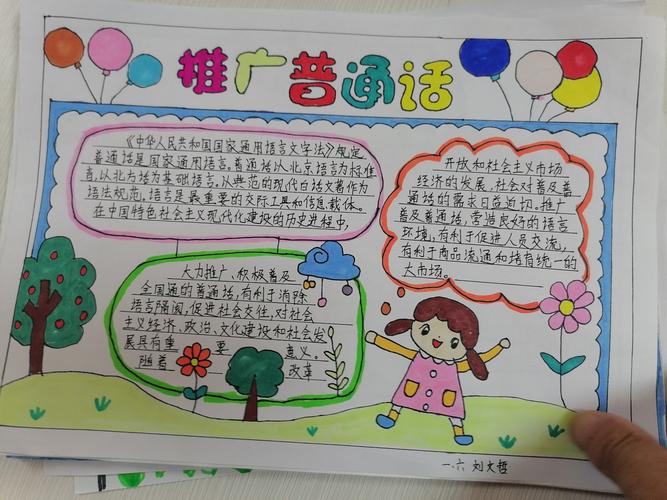 推广普通话
《中华人民共和国国家通用语言文字法》规定
普通话是国家通用语言。普通话以北京语言为标准
音,以北方话为基础语言,以典范的现代白话文著作为
语法规范,语言是最重要的交际工具和信息载体。
在中国特色社会主义现代化建设的历史进程中,
大力推广、积极普及
全国通的普通话,有利于消除
语言隔阂,促进社会交往,对社会
主义经济、政治、文化建设和社会发
展具有重 要 意义。
随着 改革
开放和社会主义市场
经济的发展,社会对普及普
通话的需求日益迫切。推广
普及普通话,营造良好的语言
环境,有利于促进人员交流,
有利于商品流通和培育统一的
大市场。
一.六 刘文哲